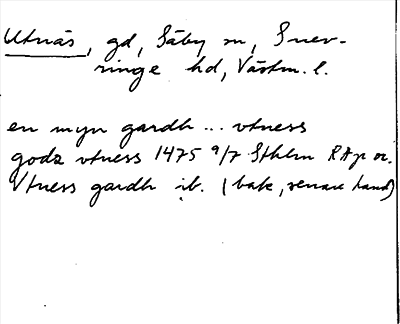 Utnäs, gd, Säby sn, Snev-
ringe hd, Västm. l.
en myn gardh ... vtness
godz vtness 1475 9/7 Sthlm RAp or.
Vtness gardh ib. (bak, senare hand)